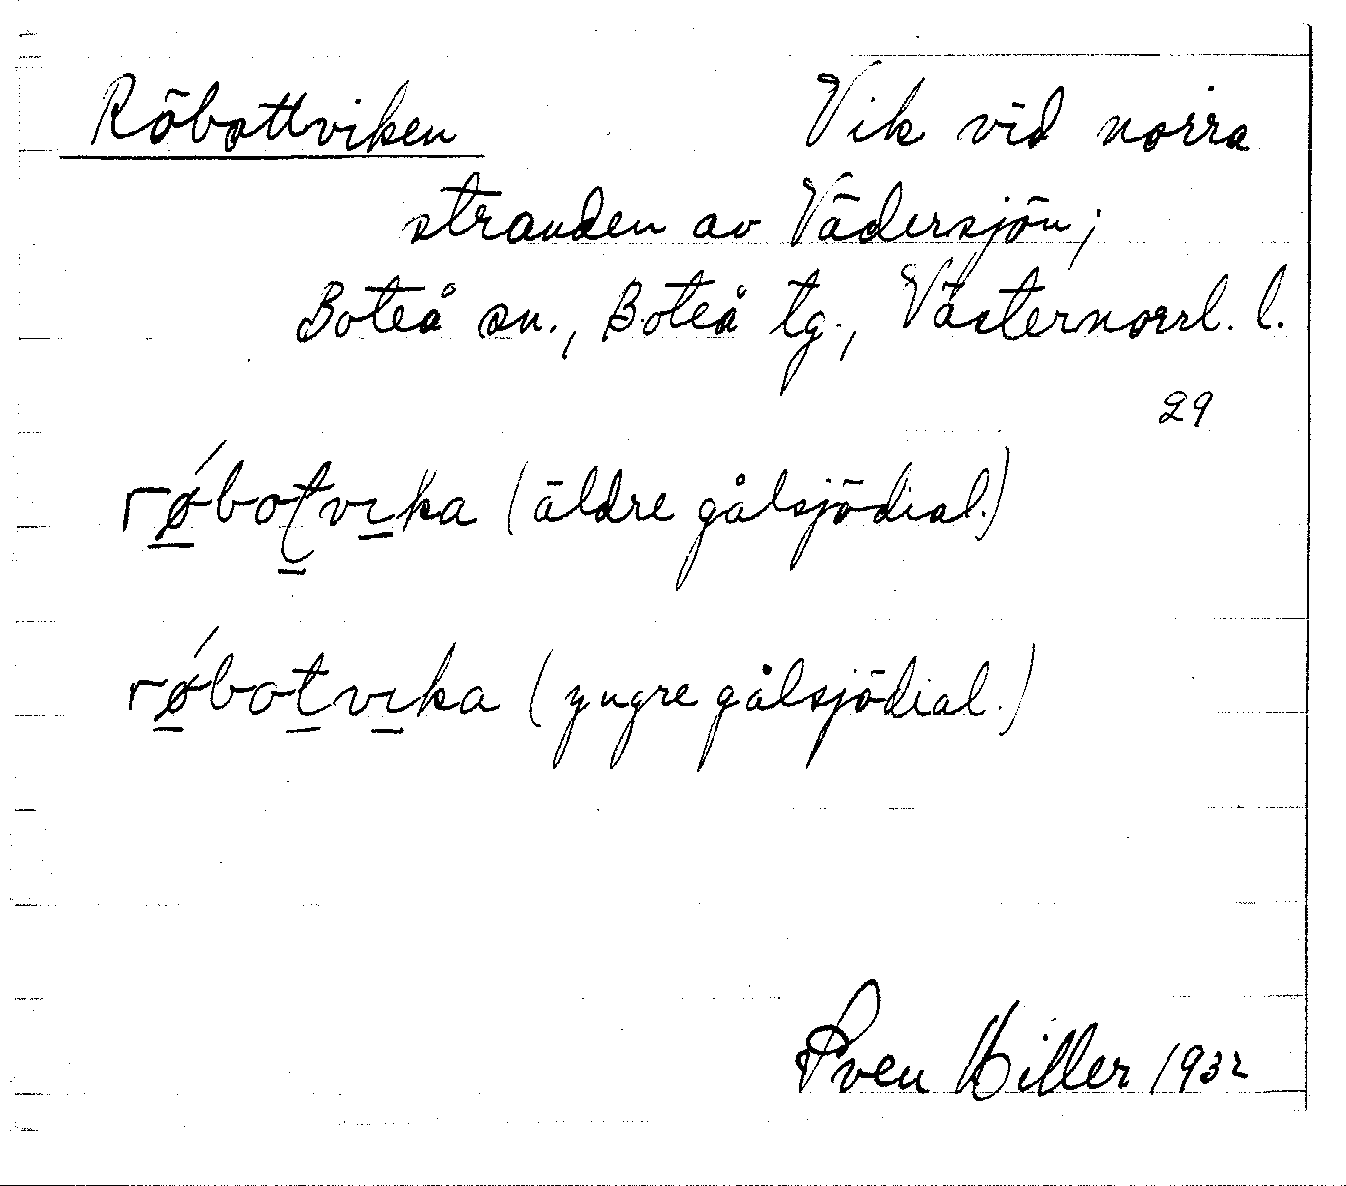 Röbottviken Vik vid norra
stranden av Vädersjön;
Boteå sn., Boteå tg., Västernorrl. l.
29
rǿbotvika (äldre gålsjödial.)
rǿbotvika (yngre gålsjödial.)
Sven Hiller 1932